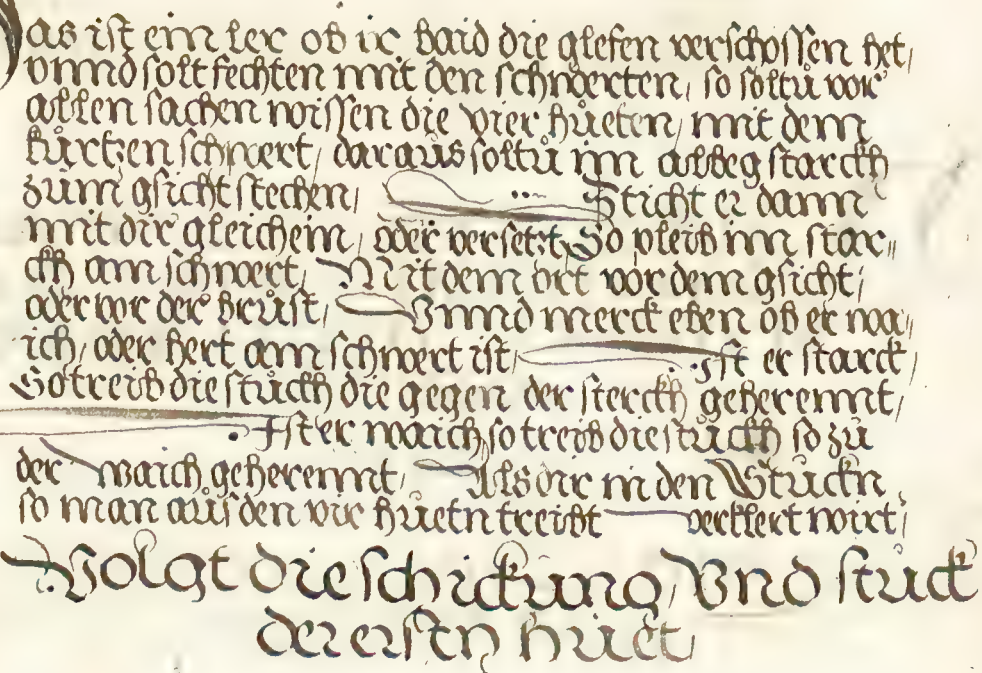 Das ist ein ler ob ir baid die glefen verschossen het,
vnnd solt fechten mit den schwerten, so soltu vor
abllen sachen wissen die vier hueten, mit dem
kurtzen schwert, daraus soltu im abbeg starckh
zum gsicht stechen, Sticht er dann
mit dir gleichein, oder versetzt, So pleib im star„
ckh am schwert, Mit dem ort vor dem gsicht,
oder vor der brust, Vnnd merck eben ob er wa„
ich, oder hert am schwert ist, Ist er starck,
So treib die stuckh die gegen der sterckh gehörennt,
Ist er waich, so treib die stuckh so zu
der waich gehörennt, Als dir in den Stuckn,
so man aus den vir huetn treibt verklert wirt,
Volgt die schickung, Vnd stuck
der ersten huet,